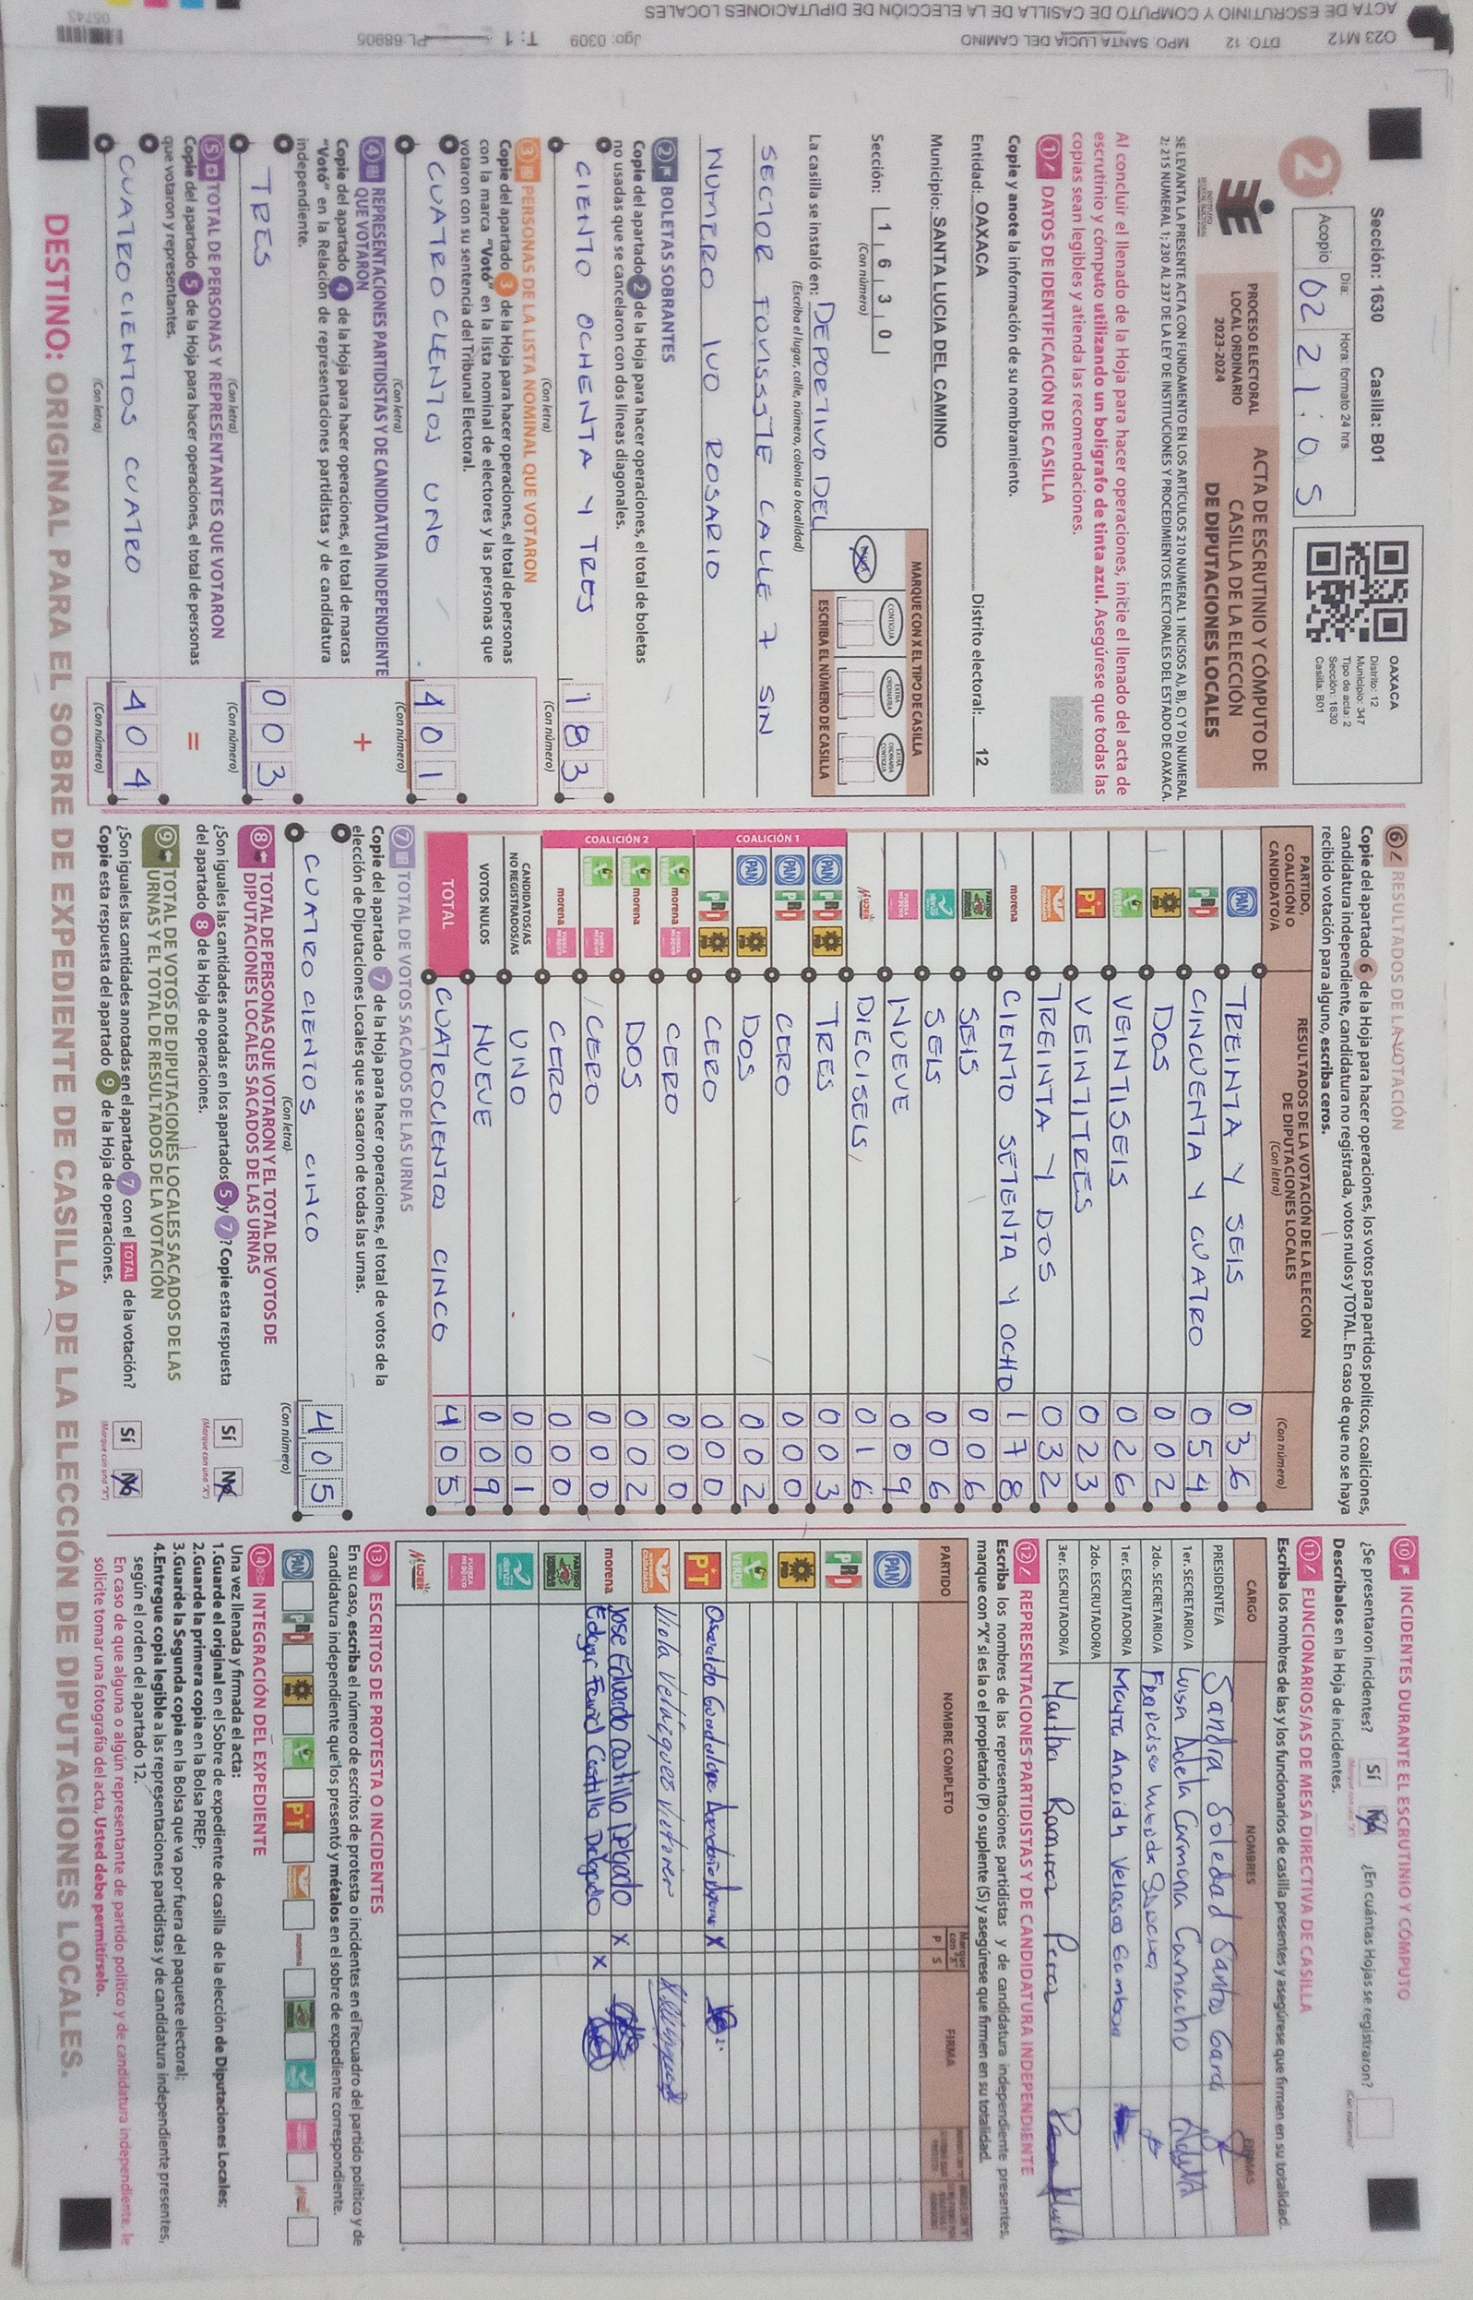 ACTA DE ESCRUTINIO Y CÓMPUTO DE CASILLA DE LA ELECCIÓN DE DIPUTACIONES LOCALES
O23 M12 DTO 12 MPO SANTA LUCIA DEL CAMINO Jgo: 0309 T: 1 PL 68905
05743
Sección: 1630 Casilla: B01
Día: Hora: formato 24 hrs.
2 Acopio 02 21:05
OAXACA
Distrito: 12
Municipio: 347
Tipo de acta: 2
Sección: 1630
Casilla: B01
PROCESO ELECTORAL
LOCAL ORDINARIO
2023-2024
ACTA DE ESCRUTINIO Y CÓMPUTO DE
CASILLA DE LA ELECCIÓN
DE DIPUTACIONES LOCALES
SE LEVANTA LA PRESENTE ACTA CON FUNDAMENTO EN LOS ARTÍCULOS 210 NUMERAL 1 INCISOS A), B), C) Y D) NUMERAL
2; 215 NUMERAL 1; 230 AL 237 DE LA LEY DE INSTITUCIONES Y PROCEDIMIENTOS ELECTORALES DEL ESTADO DE OAXACA.
Al concluir el llenado de la Hoja para hacer operaciones, inicie el llenado del acta de
escrutinio y cómputo utilizando un bolígrafo de tinta azul. Asegúrese que todas las
copias sean legibles y atienda las recomendaciones.
1 DATOS DE IDENTIFICACIÓN DE CASILLA
Copie y anote la información de su nombramiento.
Entidad: OAXACA Distrito electoral: 12
Municipio: SANTA LUCIA DEL CAMINO
Sección: 1 6 3 0
(Con número)
MARQUE CON X EL TIPO DE CASILLA
BÁSICA CONTIGUA EXTRA ORDINARIA EXTRA ORDINARIA CONTIGUA
ESCRIBA EL NÚMERO DE CASILLA
La casilla se instaló en: DEPORTIVO DEL
(Escriba el lugar, calle, número, colonia o localidad)
SECTOR FOVISSSTE CALLE 7 SIN
NUMERO IVO ROSARIO
2 BOLETAS SOBRANTES
Copie del apartado 2 de la Hoja para hacer operaciones, el total de boletas
no usadas que se cancelaron con dos líneas diagonales.
CIENTO OCHENTA Y TRES 183
(Con letra) (Con número)
3 PERSONAS DE LA LISTA NOMINAL QUE VOTARON
Copie del apartado 3 de la Hoja para hacer operaciones, el total de personas
con la marca "Votó" en la lista nominal de electores y las personas que
votaron con su sentencia del Tribunal Electoral.
CUATROCIENTOS UNO 401
(Con letra) (Con número)
4 REPRESENTACIONES PARTIDISTAS Y DE CANDIDATURA INDEPENDIENTE
QUE VOTARON
Copie del apartado 4 de la Hoja para hacer operaciones, el total de marcas
"Votó" en la Relación de representaciones partidistas y de candidatura
independiente.
+
TRES 003
(Con letra) (Con número)
5 TOTAL DE PERSONAS Y REPRESENTANTES QUE VOTARON
Copie del apartado 5 de la Hoja para hacer operaciones, el total de personas
que votaron y representantes.
=
CUATROCIENTOS CUATRO 404
(Con letra) (Con número)
6 RESULTADOS DE LA VOTACIÓN
Copie del apartado 6 de la Hoja para hacer operaciones, los votos para partidos políticos, coaliciones,
candidatura independiente, candidatura no registrada, votos nulos y TOTAL. En caso de que no se haya
recibido votación para alguno, escriba ceros.
PARTIDO,
COALICIÓN O
CANDIDATO/A
RESULTADOS DE LA VOTACIÓN DE LA ELECCIÓN
DE DIPUTACIONES LOCALES
(Con letra) (Con número)
PAN TREINTA Y SEIS 036
PRI CINCUENTA Y CUATRO 054
PRD DOS 002
VERDE VEINTISEIS 026
PT VEINTITRES 023
TREINTA Y DOS 032
morena CIENTO SETENTA Y OCHO 178
SEIS 006
SEIS 006
NUEVE 009
MUJER DIECISEIS 016
COALICIÓN 1
PAN PRI PRD TRES 003
PAN PRI CERO 000
PAN PRD DOS 002
PRI PRD CERO 000
COALICIÓN 2
VERDE morena CERO 000
VERDE morena DOS 002
VERDE CERO 000
morena CERO 000
CANDIDATOS/AS
NO REGISTRADOS/AS UNO 001
VOTOS NULOS NUEVE 009
TOTAL CUATROCIENTOS CINCO 405
7 TOTAL DE VOTOS SACADOS DE LAS URNAS
Copie del apartado 7 de la Hoja para hacer operaciones, el total de votos de la
elección de Diputaciones Locales que se sacaron de todas las urnas.
CUATROCIENTOS CINCO 405
(Con letra) (Con número)
8 TOTAL DE PERSONAS QUE VOTARON Y EL TOTAL DE VOTOS DE
DIPUTACIONES LOCALES SACADOS DE LAS URNAS
¿Son iguales las cantidades anotadas en los apartados 5 y 7? Copie esta respuesta
del apartado 8 de la Hoja de operaciones.
Sí No
(Marque con una "X")
9 TOTAL DE VOTOS DE DIPUTACIONES LOCALES SACADOS DE LAS
URNAS Y EL TOTAL DE RESULTADOS DE LA VOTACIÓN
¿Son iguales las cantidades anotadas en el apartado 7 con el TOTAL de la votación?
Copie esta respuesta del apartado 9 de la Hoja de operaciones.
Sí No
(Marque con una "X")
10 INCIDENTES DURANTE EL ESCRUTINIO Y CÓMPUTO
¿Se presentaron incidentes? Sí No ¿En cuántas Hojas se registraron?
(Con número)
Descríbalos en la Hoja de incidentes.
11 FUNCIONARIOS/AS DE MESA DIRECTIVA DE CASILLA
Escriba los nombres de las y los funcionarios de casilla presentes y asegúrese que firmen en su totalidad.
CARGO NOMBRES FIRMAS
PRESIDENTE/A Sandra Soledad Santos Garci
1er. SECRETARIO/A Luisa Adela Carmona Camacho
2do. SECRETARIO/A
1er. ESCRUTADOR/A Mayra Anaidh Velasco Gamboa
2do. ESCRUTADOR/A
3er. ESCRUTADOR/A Martha Ramirez Perez
12 REPRESENTACIONES PARTIDISTAS Y DE CANDIDATURA INDEPENDIENTE
Escriba los nombres de las representaciones partidistas y de candidatura independiente presentes,
marque con "X" si es la o el propietario (P) o suplente (S) y asegúrese que firmen en su totalidad.
PARTIDO NOMBRE COMPLETO Marque con "X" P S FIRMA
PAN
PRI
PRD
VERDE
PT Osvaldo Guadalupe X
Viola Velásquez
morena Jose Eduardo Castillo Delgado X
Edgar Castillo Delgado X
MUJER
13 ESCRITOS DE PROTESTA O INCIDENTES
En su caso, escriba el número de escritos de protesta o incidentes en el recuadro del partido político y de
candidatura independiente que los presentó y métalos en el sobre de expediente correspondiente.
PAN PRI PRD VERDE PT morena
14 INTEGRACIÓN DEL EXPEDIENTE
Una vez llenada y firmada el acta:
1.Guarde el original en el Sobre de expediente de casilla de la elección de Diputaciones Locales;
2.Guarde la primera copia en la Bolsa PREP;
3.Guarde la Segunda copia en la Bolsa que va por fuera del paquete electoral;
4.Entregue copia legible a las representaciones partidistas y de candidatura independiente presentes,
según el orden del apartado 12.
En caso de que alguna o algún representante de partido político y de candidatura independiente, le
solicite tomar una fotografía del acta, Usted debe permitírselo.
DESTINO: ORIGINAL PARA EL SOBRE DE EXPEDIENTE DE CASILLA DE LA ELECCIÓN DE DIPUTACIONES LOCALES.